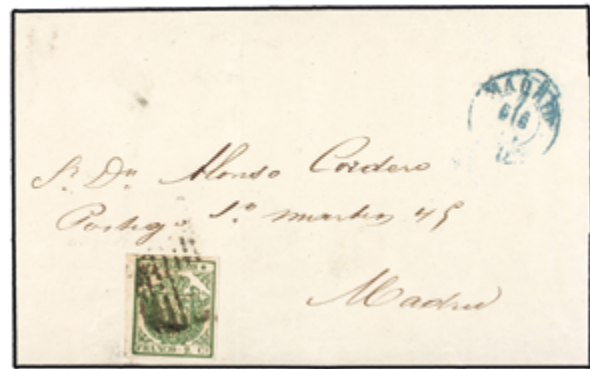 MADRID
6 6
Sr. Dn. Alonso Cordero
Postigo Sn. Martin 45
Madrid
FRANCO 2 CS